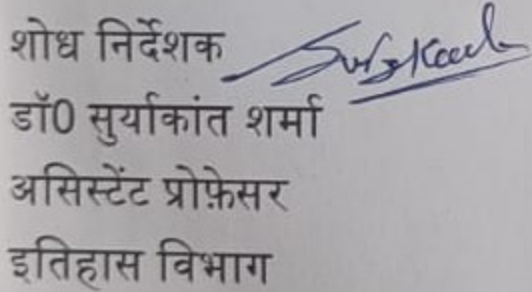 शोध निर्देशक
डॉ0 सुर्याकांत शर्मा
असिस्टेंट प्रोफ़ेसर
इतिहास विभाग